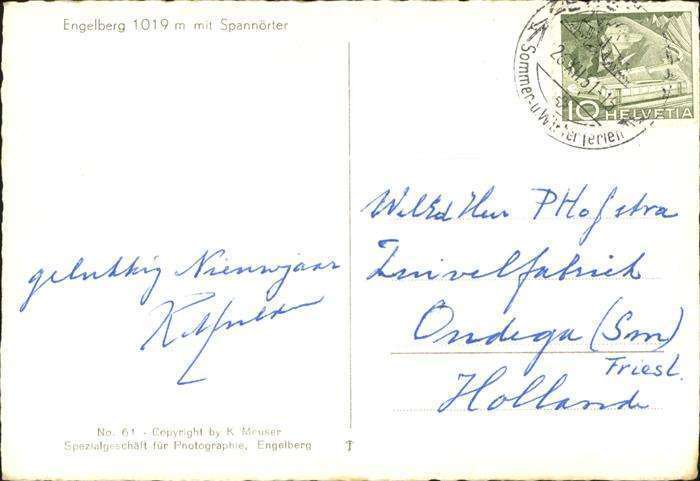 Engelberg 1019 m mit Spannörter
10 HELVETIA
Sommer-u Winterferien
WelEd Heer P Hofstra
Zuivelfabriek
Oudega (Sm)
Friesl.
Holland
gelukkig Nieuwjaar
No. 61 - Copyright by K Meuser
Spezialgeschäft für Photographie, Engelberg